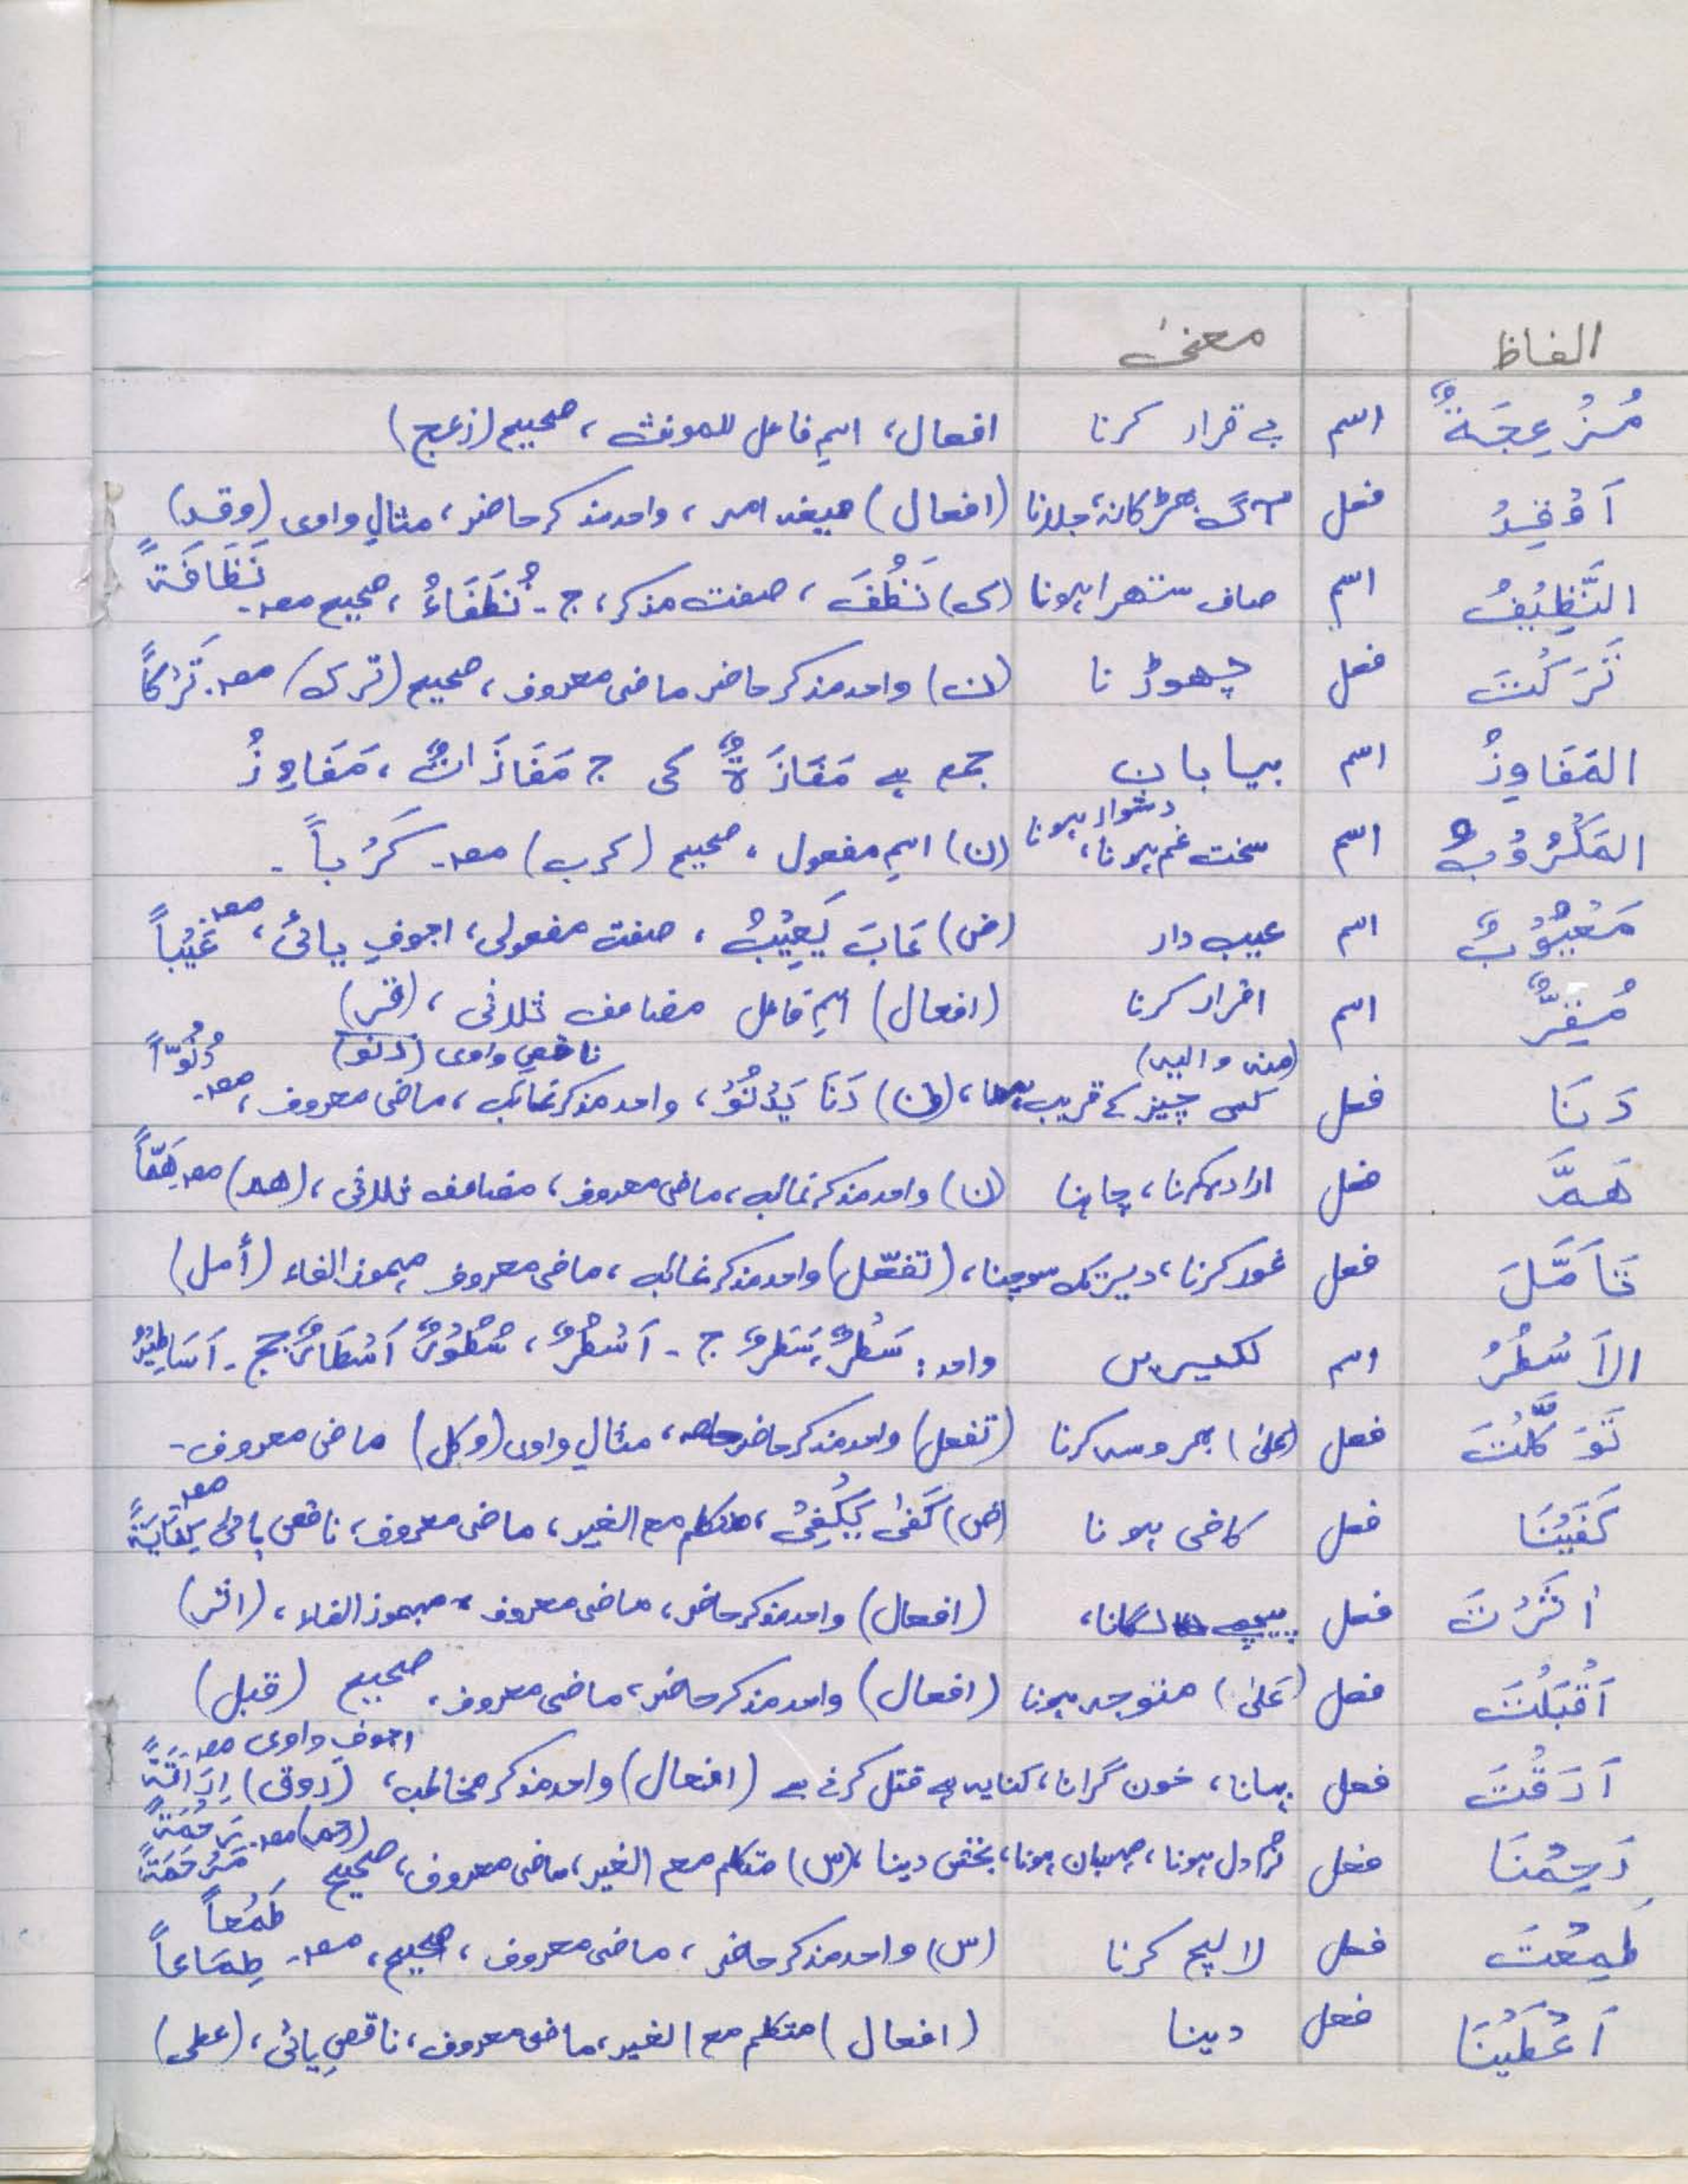 الفاظ معنیٰ
مُزْعِجَةٌ اسم بے قرار کرنا افعال، اسمِ فاعل للمونث، صحیح (زعج)
اَوْقِدْ فعل آگ بھڑکانہ، جلانا (افعال) صیغہ امر، واحد مذکر حاضر، مثالِ واوی (وقد)
النَّظِيْفُ اسم صاف ستھرا ہونا (ک) نَظُفَ، صفت مذکر، ج۔ نُظَفَاءُ، صحیح مصد۔ نَظَافَةً
تَرَكْتَ فعل چھوڑنا (ن) واحد مذکر حاضر ماضی معروف، صحیح (ترک) مصد۔ تَرْكاً
المَفَاوِزُ اسم بیابان جمع ہے مَفَازَةٌ کی ج مَفَازَاتٌ، مَفَاوِزُ
المَكْرُوْبُ اسم سخت غم ہونا، دشوار ہونا (ن) اسمِ مفعول، صحیح (کرب) مصد۔ كَرْباً۔
مَعْيُوْبٌ اسم عیب دار (ض) عَابَ يَعِيْبُ، صفت مفعولی، اجوفِ یائی، مصد عَيْباً
مُقِرٌّ اسم اقرار کرنا (افعال) اسمِ فاعل مضاعف ثلاثی، (قر)
(منه و الیہ) ناقصِ واوی (دنو) دُنُوّاً
دَنَا فعل کسی چیز کے قریب ہونا، (ن) دَنَا يَدْنُوْ، واحد مذکر غائب، ماضی معروف، مصد۔
هَمَّ فعل ارادہ کرنا، چاہنا (ن) واحد مذکر غائب، ماضی معروف، مضاعف ثلاثی، (ھم) مصد هَمّاً
تَأَمَّلَ فعل غور کرنا، دیر تک سوچنا، (تفعّل) واحد مذکر غائب، ماضی معروف مہموز الفاء (أمل)
الاَسْطُرُ اسم لکیریں واحد: سَطْرٌ، سَطَرٌ ج۔ اَسْطُرٌ، سُطُوْرٌ اَسْطَارٌ جج۔ اَسَاطِيْرُ
تَوَكَّلْتَ فعل (علیٰ) بھروسہ کرنا (تفعل) واحد مذکر حاضر، مثالِ واوی (وکل) ماضی معروف۔
كَفَيْنَا فعل کافی ہونا (ض) كَفىٰ يَكْفِيْ، متکلم مع الغیر، ماضی معروف، ناقص یائی مصد كِفَايَةً
اٰثَرْتَ فعل پیچھے لگانا، (افعال) واحد مذکر حاضر، ماضی معروف، مہموز الفاء، (اثر)
اَقْبَلْتَ فعل (عَلیٰ) متوجہ ہونا (افعال) واحد مذکر حاضر، ماضی معروف، صحیح (قبل)
اَرَقْتَ فعل بہانا، خون گرانا، کنایہ ہے قتل کرنے سے (افعال) واحد مذکر مخاطب، (روق) اجوف واوی مصد۔ اِرَاقَةً
رَحِمْنَا فعل نرم دل ہونا، مہربان ہونا، بخش دینا، (س) متکلم مع الغیر، ماضی معروف، صحیح (رحم) مصد۔ رَحْمَةً مَرْحَمَةً
طَمِعْتَ فعل لالچ کرنا (س) واحد مذکر حاضر، ماضی معروف، صحیح، مصد۔ طِمَاعاً طَمْعاً
اَعْطَيْنَا فعل دینا (افعال) متکلم مع الغیر، ماضی معروف، ناقصِ یائی، (عطی)